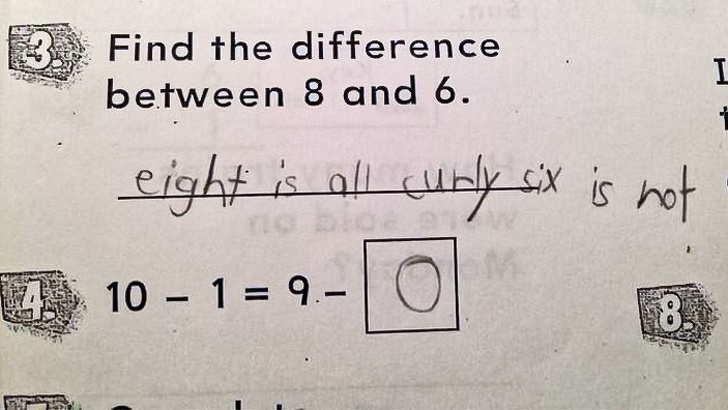 3. Find the difference
between 8 and 6.
eight is all curly six is not
4. 10 - 1 = 9 - 0
8.